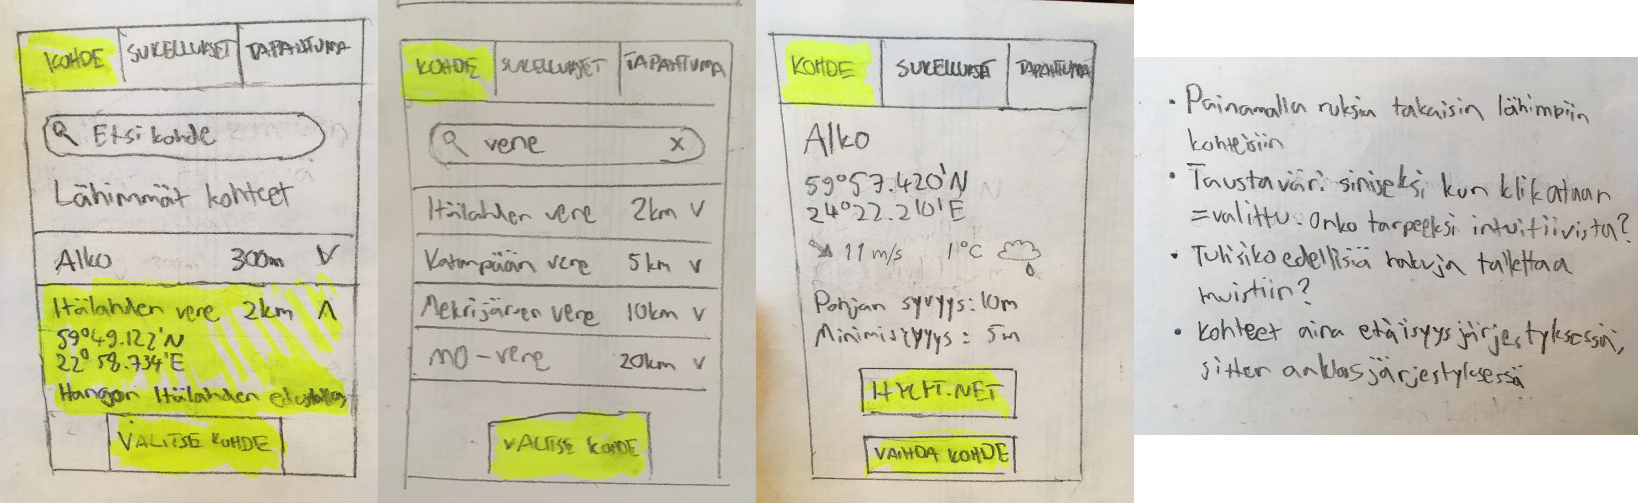 KOHDE SUKELLUKSET TAPAHTUMA
Etsi kohde
Lähimmät kohteet
Alko 300m V
Itälahden vene 2km Λ
59°49.122'N
22°58.734'E
Hangon Itälahden edustalla
VALITSE KOHDE
KOHDE SUKELLUKSET TAPAHTUMA
vene X
Itälahden vene 2km V
vene 5km V
Mekrijärven vene 10km V
MO-vene 20km V
VALITSE KOHDE
KOHDE SUKELLUKSET TAPAHTUMA
Alko
59°57.420'N
24°22.210'E
11 m/s 1°C
Pohjan syvyys: 10m
Minimisyvyys: 5m
HYLYT.NET
VAIHDA KOHDE
• Painamalla ruksia takaisin lähimpiin
kohteisiin
• Taustaväri siniseksi kun klikataan
=valittu. Onko tarpeeksi intuitiivista?
• Tulisiko edellisiä hakuja tallettaa
muistiin?
• Kohteet aina etäisyysjärjestyksessä,
sitten aakkosjärjestyksessä